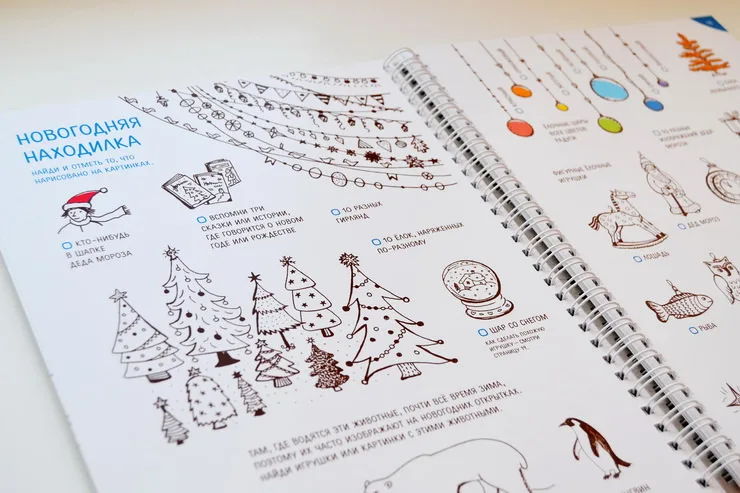 НОВОГОДНЯЯ
НАХОДИЛКА
НАЙДИ И ОТМЕТЬ ТО, ЧТО
НАРИСОВАНО НА КАРТИНКАХ.
КТО-НИБУДЬ
В ШАПКЕ
ДЕДА МОРОЗА
ВСПОМНИ ТРИ
СКАЗКИ ИЛИ ИСТОРИИ,
ГДЕ ГОВОРИТСЯ О НОВОМ
ГОДЕ ИЛИ РОЖДЕСТВЕ
10 РАЗНЫХ
ГИРЛЯНД
10 ЁЛОК, НАРЯЖЕННЫХ
ПО-РАЗНОМУ
ШАР СО СНЕГОМ
КАК СДЕЛАТЬ ПОХОЖУЮ
ИГРУШКУ – СМОТРИ
СТРАНИЦУ
ТАМ, ГДЕ ВОДЯТСЯ ЭТИ ЖИВОТНЫЕ, ПОЧТИ ВСЁ ВРЕМЯ ЗИМА,
ПОЭТОМУ ИХ ЧАСТО ИЗОБРАЖАЮТ НА НОВОГОДНИХ ОТКРЫТКАХ.
НАЙДИ ИГРУШКИ ИЛИ КАРТИНКИ С ЭТИМИ ЖИВОТНЫМИ.
ЁЛОЧНЫЕ ШАРЫ
ВСЕХ ЦВЕТОВ
РАДУГИ
10 РАЗНЫХ
ФИГУРНЫЕ ЁЛОЧНЫЕ
ИГРУШКИ
ДЕД МОРОЗ
ЛОШАДЬ
РЫБА